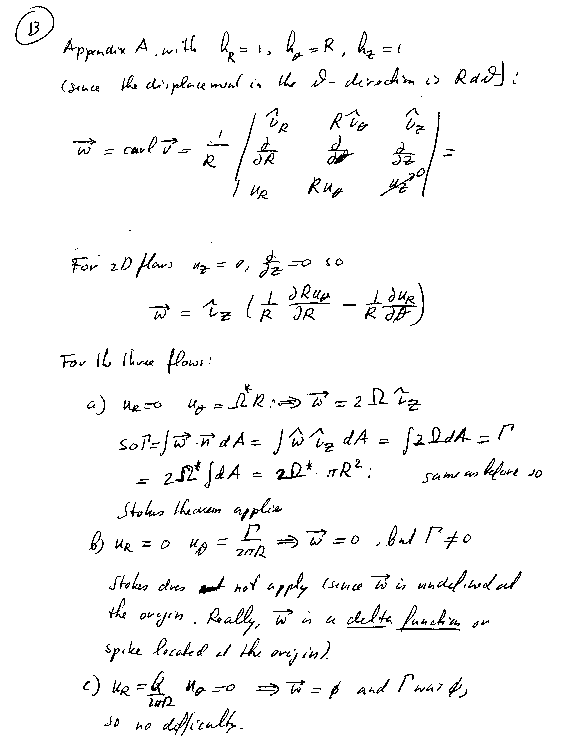 13
Appendix A. with h_R = 1, h_θ = R, h_z = 1
(since the displacement in the ϑ-direction is R dϑ):
w⃗ = curl v⃗ = 1/R | î_R R î_θ î_z |
| ∂/∂R ∂/∂θ ∂/∂z | =
| u_R R u_θ u_z 0 |
For 2D flows u_z = 0, ∂/∂z = 0 so
w⃗ = î_z ( 1/R ∂Ru_θ/∂R − 1/R ∂u_R/∂θ )
For the three flows:
a) u_R = 0 u_θ = Ω*R: ⇒ w⃗ = 2 Ω î_z
so Γ = ∫ w⃗·n⃗ dA = ∫ ŵ î_z dA = ∫ 2Ω dA = Γ
= 2Ω* ∫ dA = 2Ω* · πR²; same as before so
Stokes theorem applies
b) u_R = 0 u_θ = Γ/2πR ⇒ w⃗ = 0, but Γ ≠ 0
Stokes does not apply (since w⃗ is undefined at
the origin. Really, w⃗ is a delta function or
spike located at the origin).
c) u_R = Q/2πR u_θ = 0 ⇒ w⃗ = ϕ and Γ was ϕ,
so no difficulty.